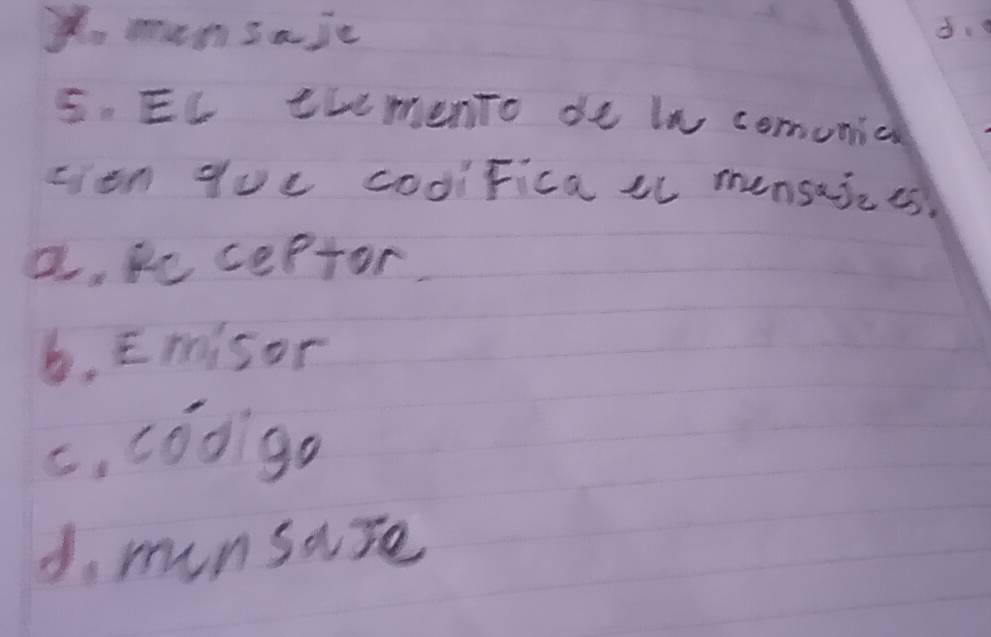 x. mensaje
d.
5. EL elemento de la comunica
cion que codifica el mensaje es.
a. Receptor
b. Emisor
c. código
d. mensaje